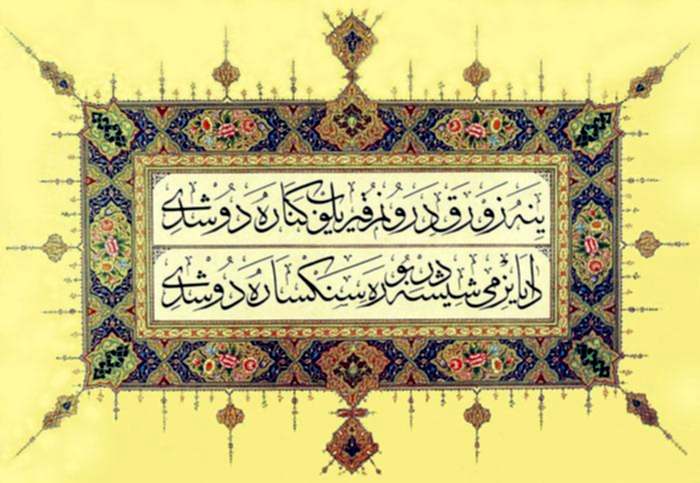 ینه زورق درونم قیریلوب کناره دوشدی
دایانیرمی شیشه در بو ره سنکساره دوشدی